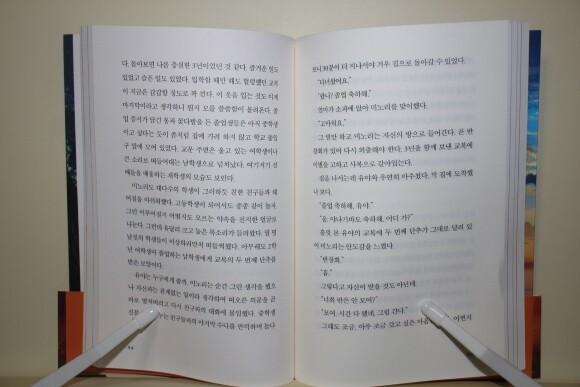 다. 돌아보면 나름 충실한 3년이었던 것 같다. 즐거운 일도
있었고 슬픈 일도 있었다. 입학할 때만 해도 헐렁했던 교복
이 지금은 갑갑할 정도로 꽉 낀다. 이 옷을 입는 것도 이제
마지막이라고 생각하니 뭔지 모를 쓸쓸함이 몰려온다. 졸
업 증서가 담긴 통과 꽃다발을 든 졸업생들은 아직 중학생
이고 싶다는 듯이 좀처럼 집에 가려 하지 않고 학교 출입
구 앞에 모여 있었다. 교문 주변은 울고 있는 여학생이나
큰 소리로 떠들어대는 남학생으로 넘쳐났다. 여기저기 선
배들을 배웅하는 재학생의 모습도 보인다.
미노리도 대다수의 학생이 그러하듯 친한 친구들과 헤
어짐을 아쉬워했다. 고등학생이 되어서도 종종 같이 놀자.
그런 이루어질지 어떨지도 모르는 약속을 진지한 얼굴로
나눈다. 그런데 유달리 크고 높은 목소리가 들려왔다.
남짓의 학생들이 이상하리만치 떠들썩했다. 아무래도 2학
년 여학생이 졸업하는 남학생에게 교복의 두 번째 단추를
받은 모양이다.
유야는 누구에게 줄까. 미노리는 순간 그런 생각을 했으
나 자신하는 관계없는 일이라 생각하며 떠오른 의문을 곧
바로 떨쳐버리고 다시 친구와의 대화에 몰입했다. 중학생
신분 친구들과의 마지막 수다를 만끽하며 놀다
94
보니 30분이 더 지나서야 겨우 집으로 돌아갈 수 있었다.
"다녀왔어요."
"왔니? 졸업 축하해."
엄마가 소파에 앉아 미노리를 맞이했다.
"고마워요."
그 말만 하고 미노리는 자신의 방으로 들어간다. 곧 반
창회가 있어 다시 외출해야 한다. 3년을 함께 보낸 교복에
이별을 고하고 사복으로 갈아입는다.
집을 나서는데 유야와 우연히 마주쳤다. 막 집에 도착했
나 보다.
"졸업 축하해, 유야."
"응. 아나기바도 축하해. 어디 가?"
흘깃 본 유야의 교복에 두 번째 단추가 그대로 달려 있
어 미노리는 안도감을 느꼈다.
"반창회."
"흠."
그렇다고 자신이 받을 것도 아닌데.
"너희 반은 안 모여?"
"모여. 시간 다 됐네. 그럼 간다."
그래도 조금, 아주 조금 갖고 싶은 마음 어쩐지